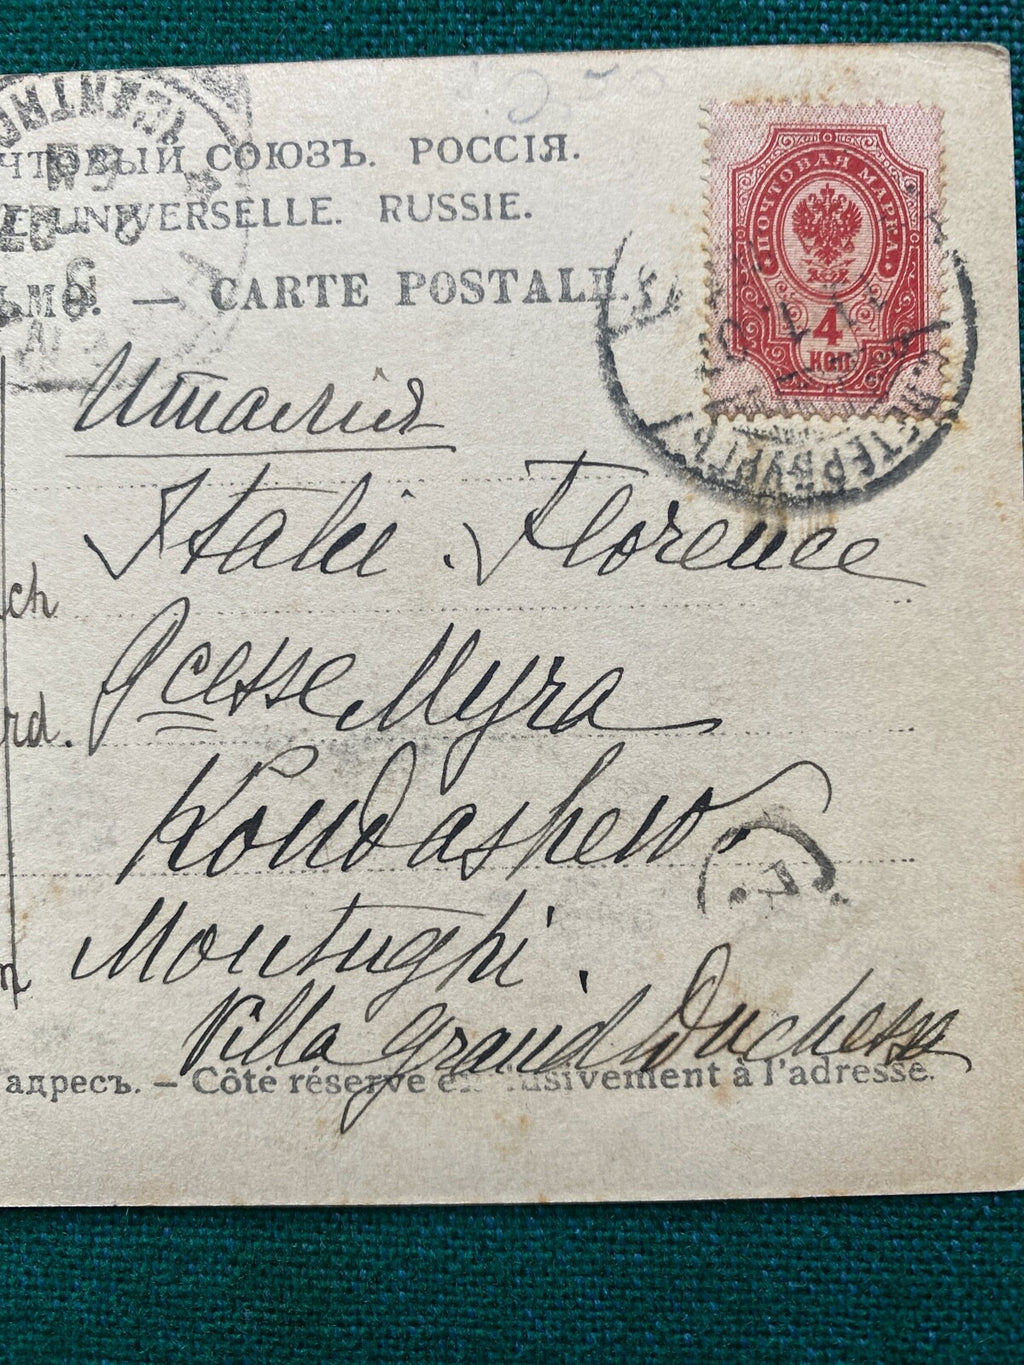 ЧТОВЫЙ СОЮЗЪ. РОССІЯ.
UNIVERSELLE. RUSSIE.
ЬМО. — CARTE POSTALE.
ПОЧТОВАЯ МАРКА
4
КОП
С.ПЕТЕРБУРГЪ
Италія
Italie. Florence
ch
Pcesse Myra
rd.
Kondashew.
Montughi.
Villa Grand Duchessa
адресъ. — Côté réservé exclusivement à l'adresse.